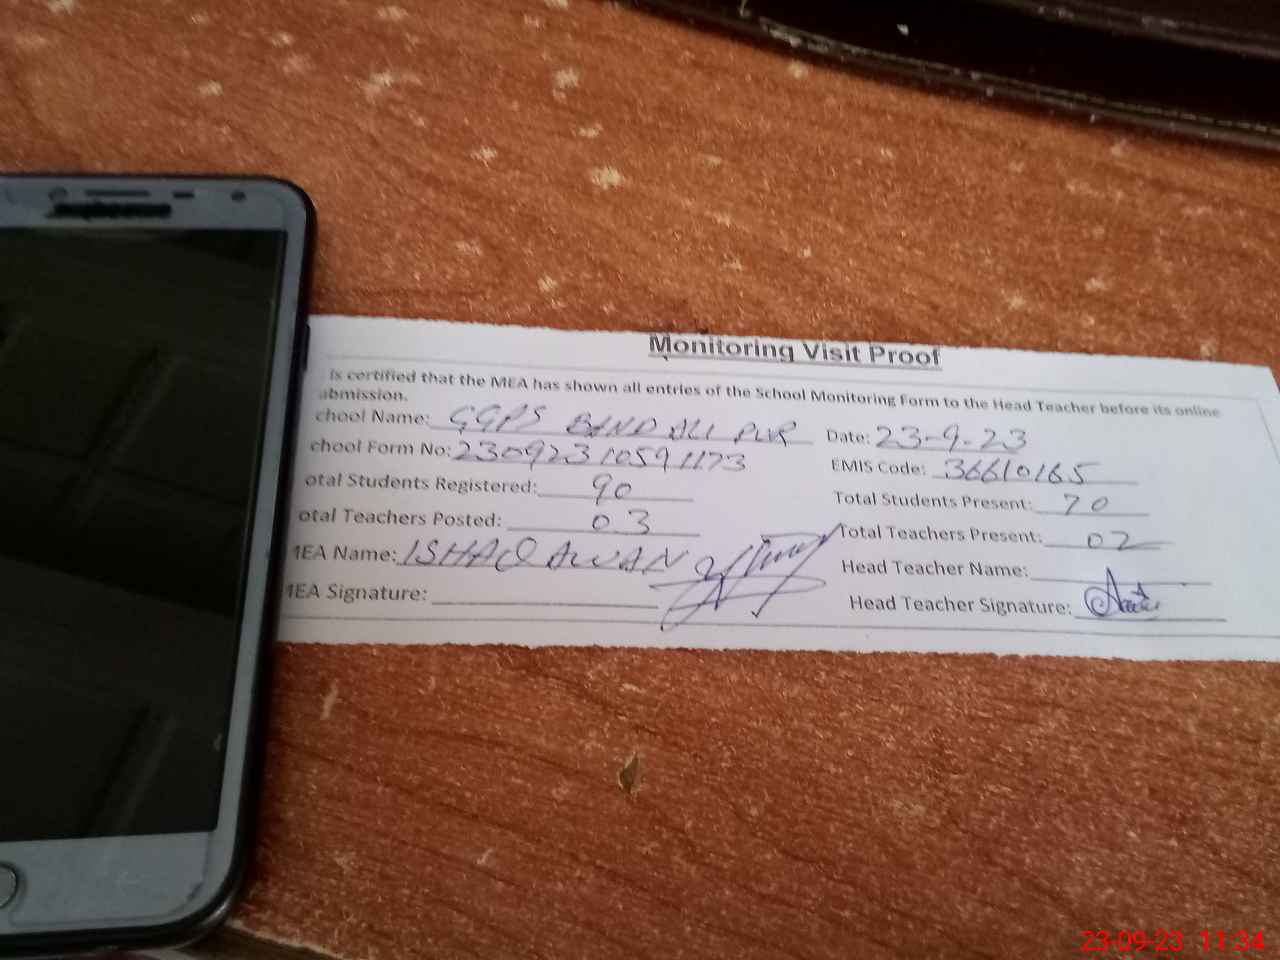 Monitoring Visit Proof
is certified that the MEA has shown all entries of the School Monitoring Form to the Head Teacher before its online
abmission.
chool Name: GGPS BAND ALI PUR Date: 23-9-23
chool Form No: 23092310591173 EMIS Code: 36610165
otal Students Registered: 90 Total Students Present: 70
otal Teachers Posted: 03 Total Teachers Present: 02
MEA Name: ISHAQ AWAN Head Teacher Name:
MEA Signature: Head Teacher Signature:
23-09-23 11:34